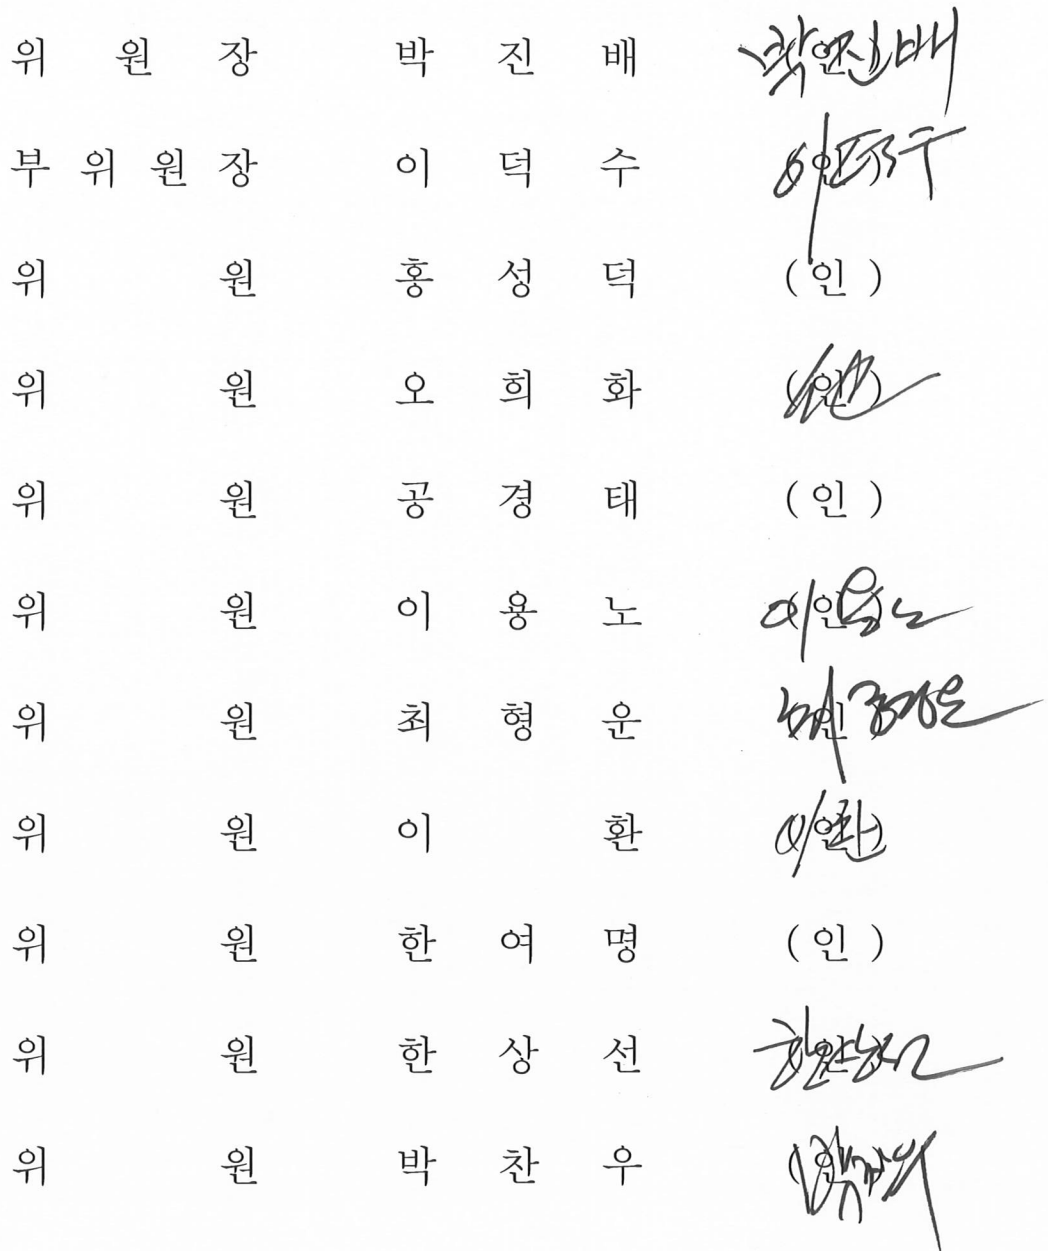 위 원 장 박 진 배 (인) 박진배
부 위 원 장 이 덕 수 (인) 이덕수
위 원 홍 성 덕 (인)
위 원 오 희 화 (인)
위 원 공 경 태 (인)
위 원 이 용 노 (인) 이용노
위 원 최 형 운 (인)
위 원 이 환 (인) 이환
위 원 한 여 명 (인)
위 원 한 상 선 (인) 한상선
위 원 박 찬 우 (인)